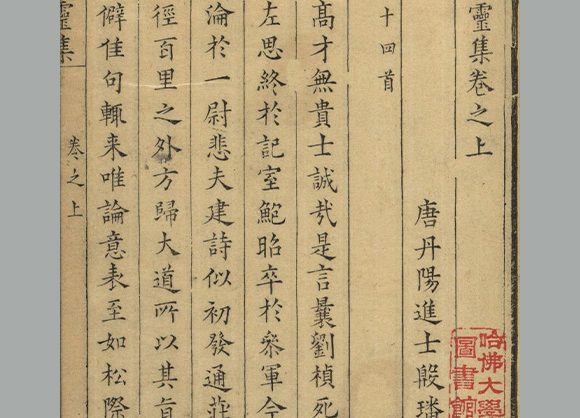 靈集卷之上
唐丹陽進士殷璠
十四首
高才無貴士誠哉是言曩劉楨死
左思終於記室鮑昭卒於叅軍今
淪於一尉悲夫建詩似初發通莊
徑百里之外方歸大道所以其旨
僻佳句輙来唯論意表至如松際
靈集
卷之上
哈佛大學
圖書館